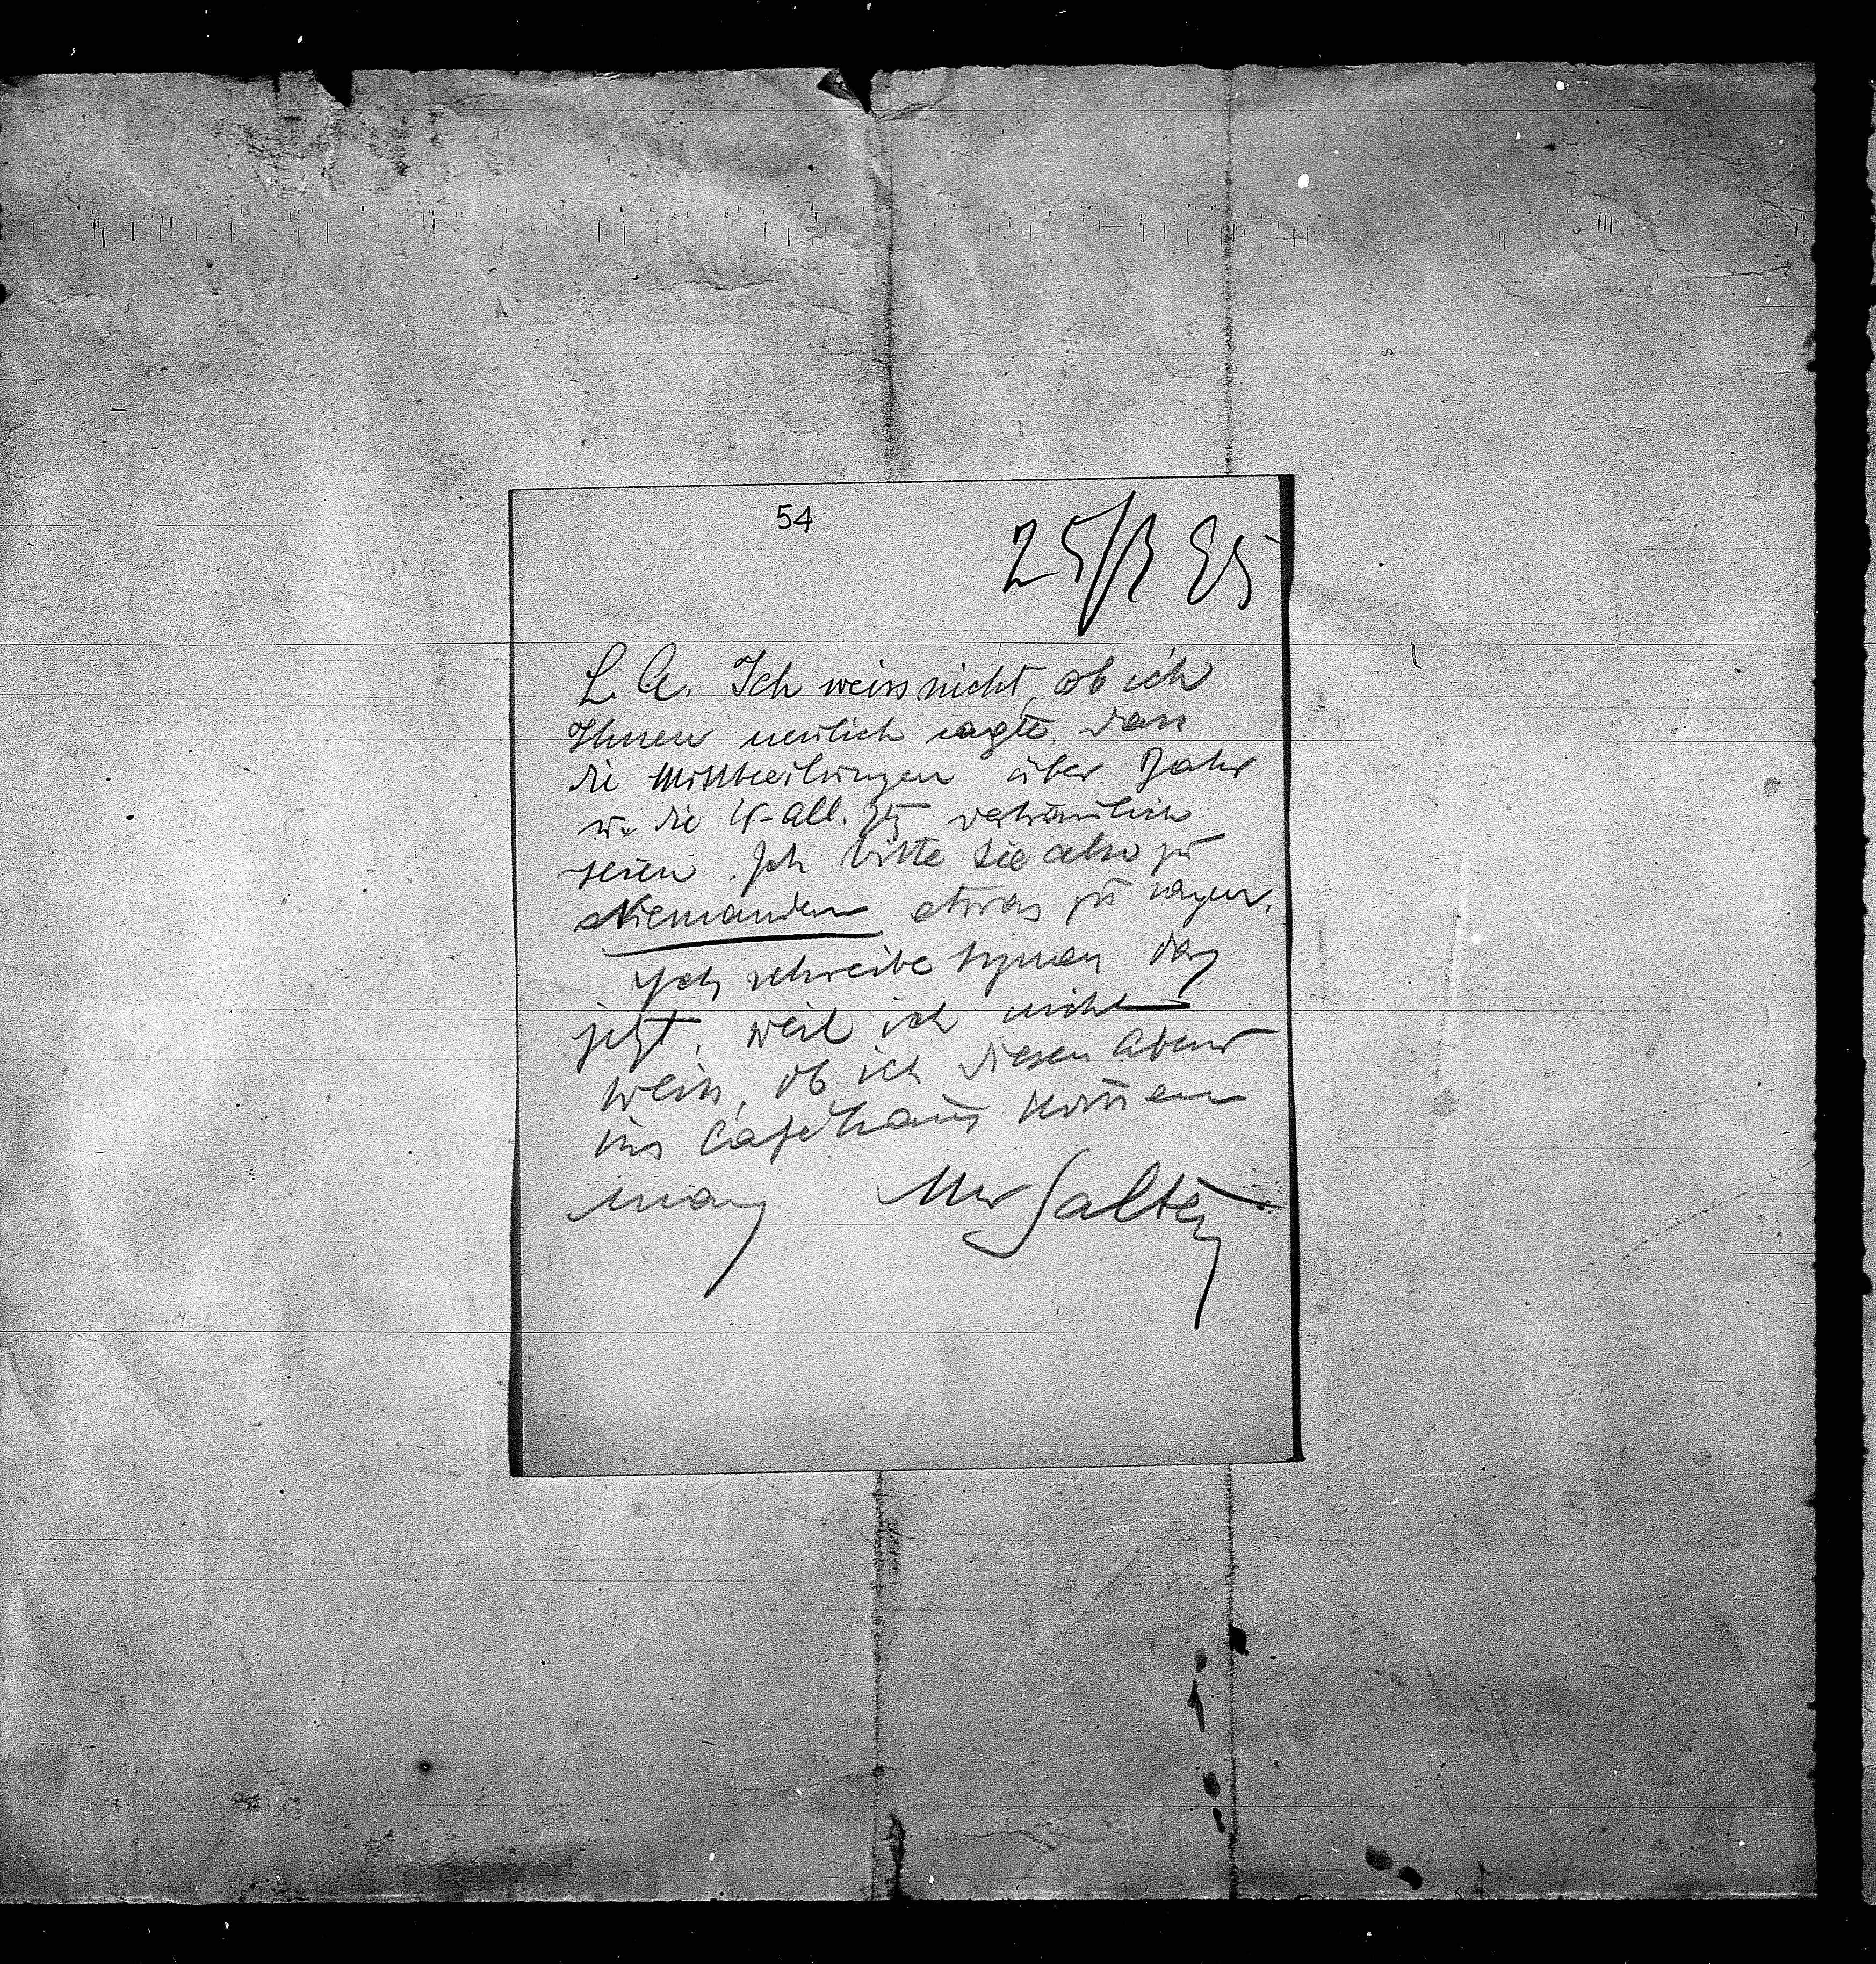 54
25/3 95
L. A. Ich weiss nicht, ob ich
Ihnen neulich sagte, dass
die Mittheilungen über Bahr
u. die N-All. Ztg vertraulich
seien. Ich bitte Sie also zu
Niemandem etwas zu sagen.
Ich schreibe Ihnen das
jetzt, weil ich nicht
weiss, ob ich diesen Abend
ins Caféhaus kommen
mag Ihr Salten